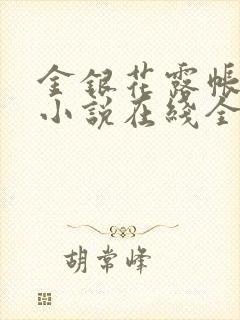 金銀花露帳
小說在綫全
胡常峰